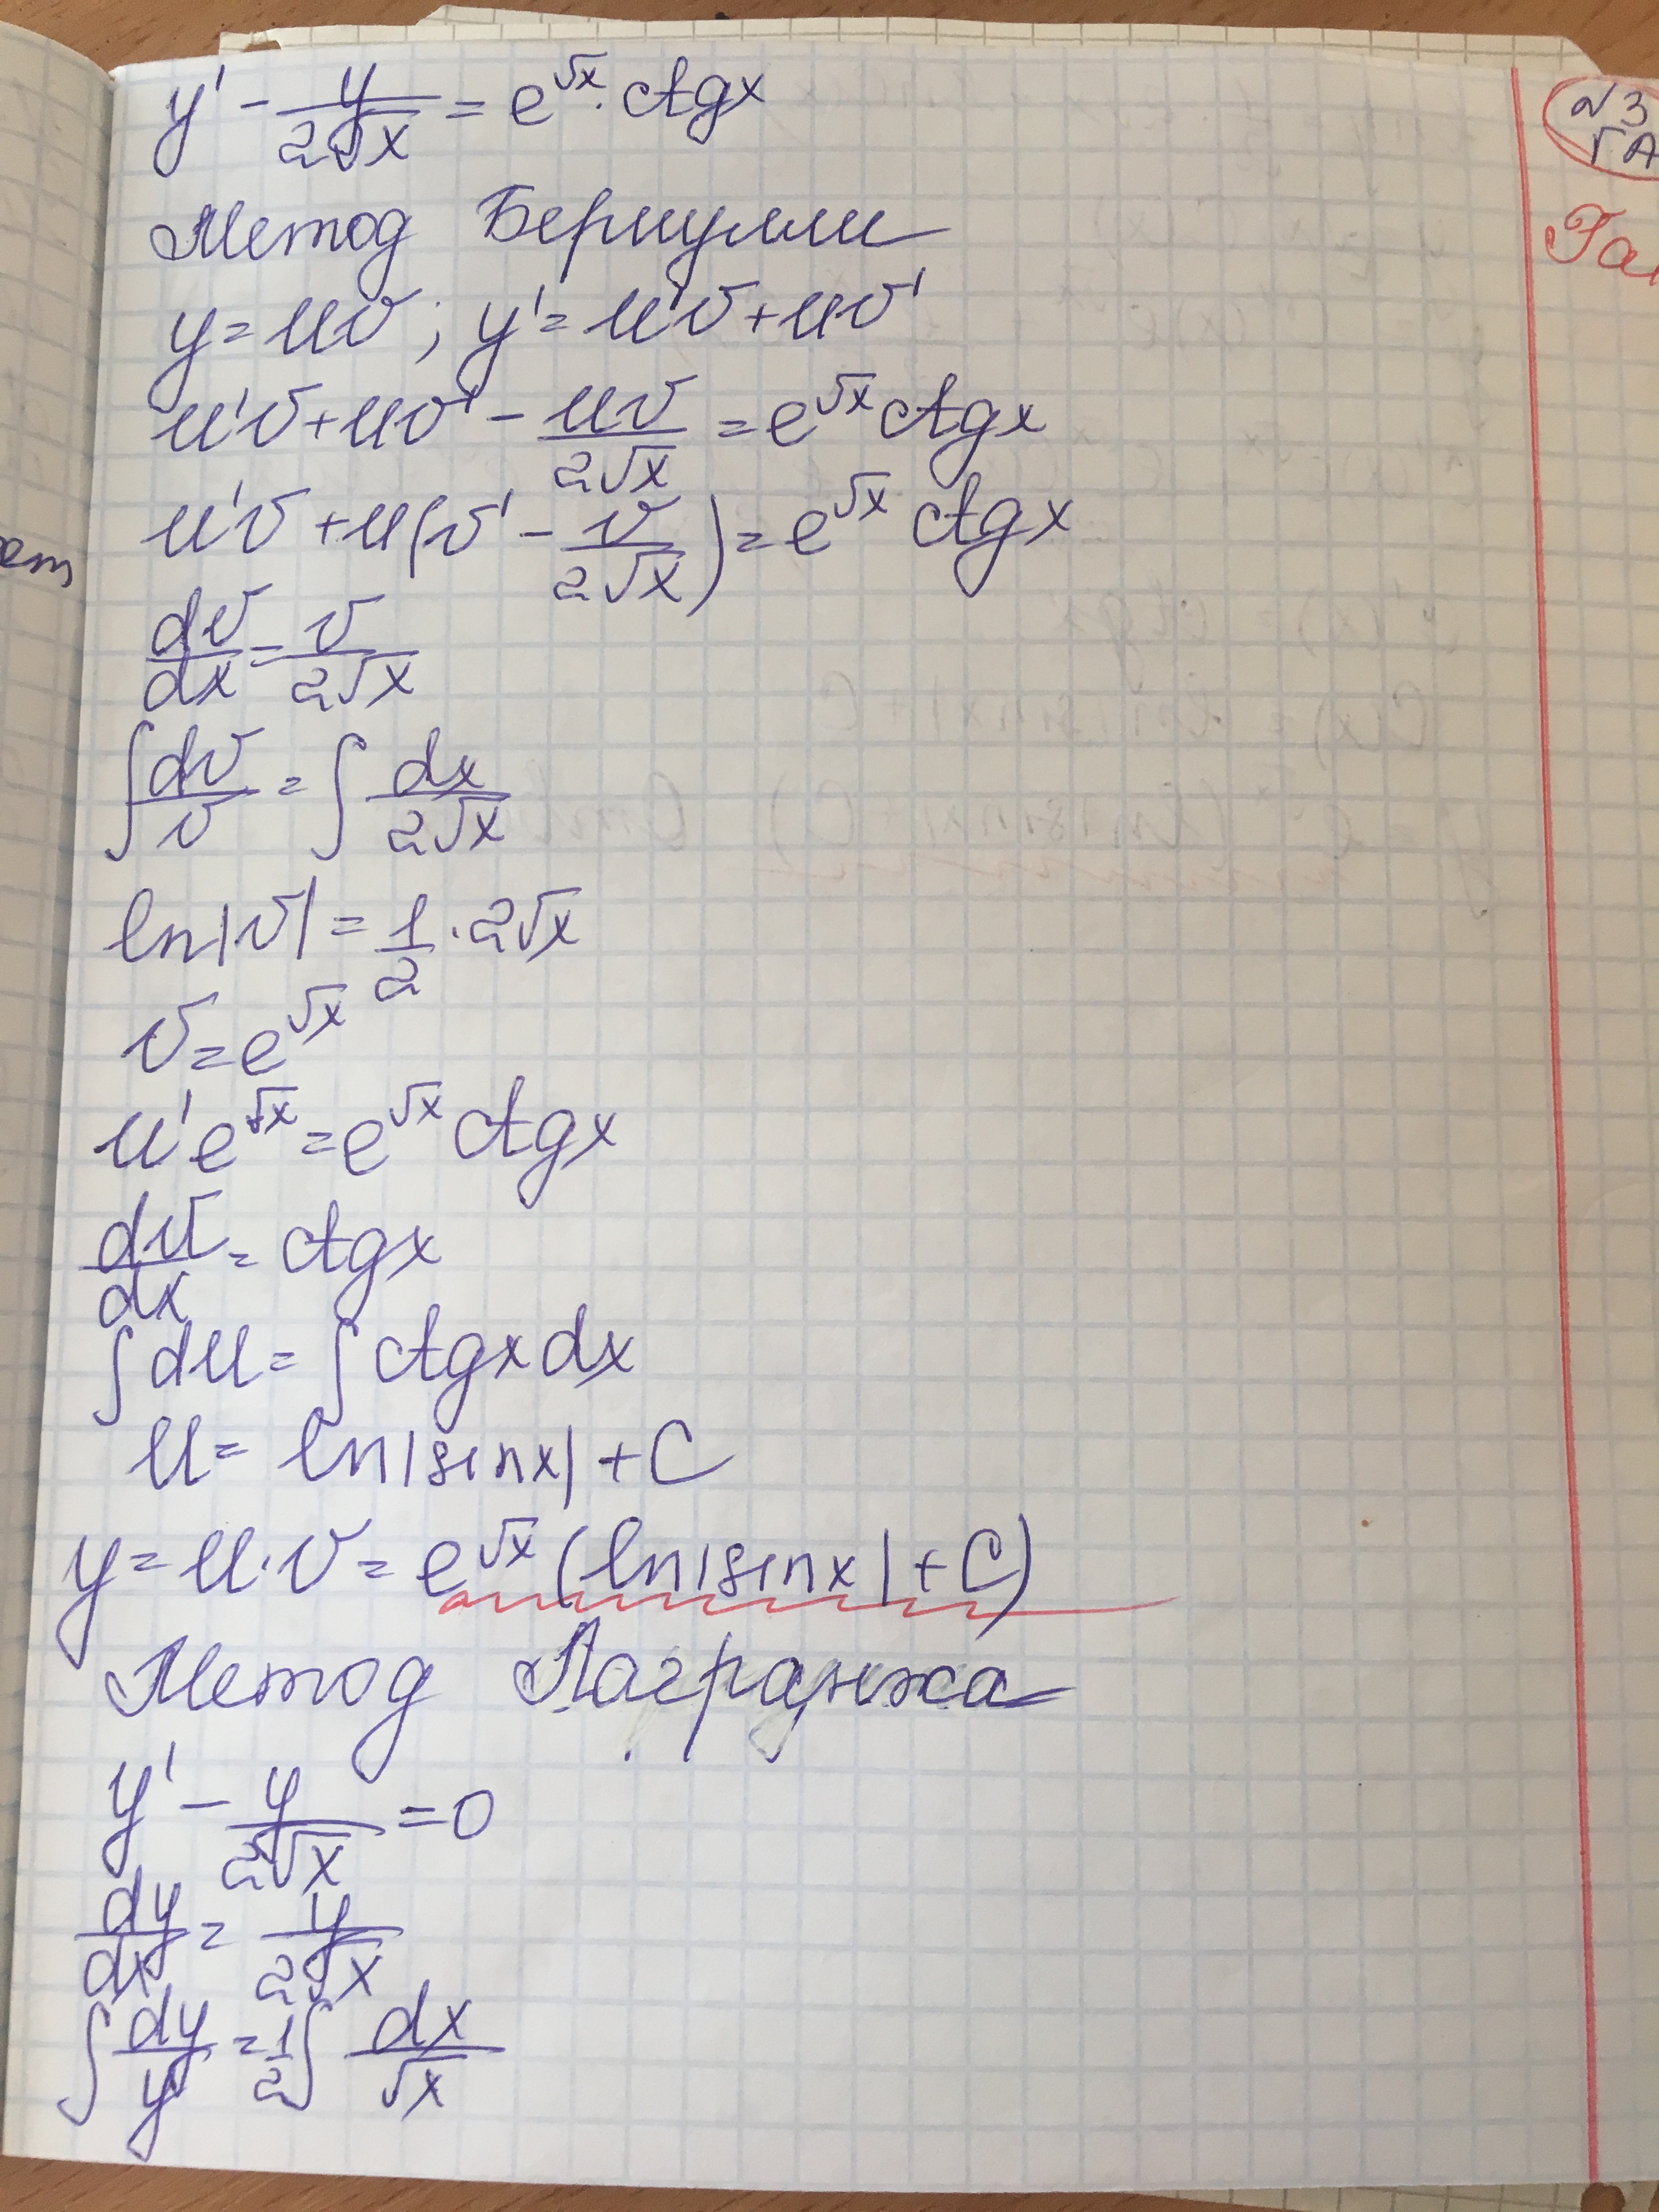 y' - y/(2√x) = e^√x · ctgx
Метод Бернулли
y = uv ; y' = u'v + uv'
u'v + uv' - uv/(2√x) = e^√x ctgx
u'v + u(v' - v/(2√x)) = e^√x ctgx
dv/dx = v/(2√x)
∫ dv/v = ∫ dx/(2√x)
ln|v| = 1/2 · 2√x
v = e^√x
u'e^√x = e^√x ctgx
du/dx = ctgx
∫ du = ∫ ctgx dx
u = ln|sinx| + C
y = u · v = e^√x (ln|sinx| + C)
Метод Лагранжа
y' - y/(2√x) = 0
dy/dx = y/(2√x)
∫ dy/y = 1/2 ∫ dx/√x